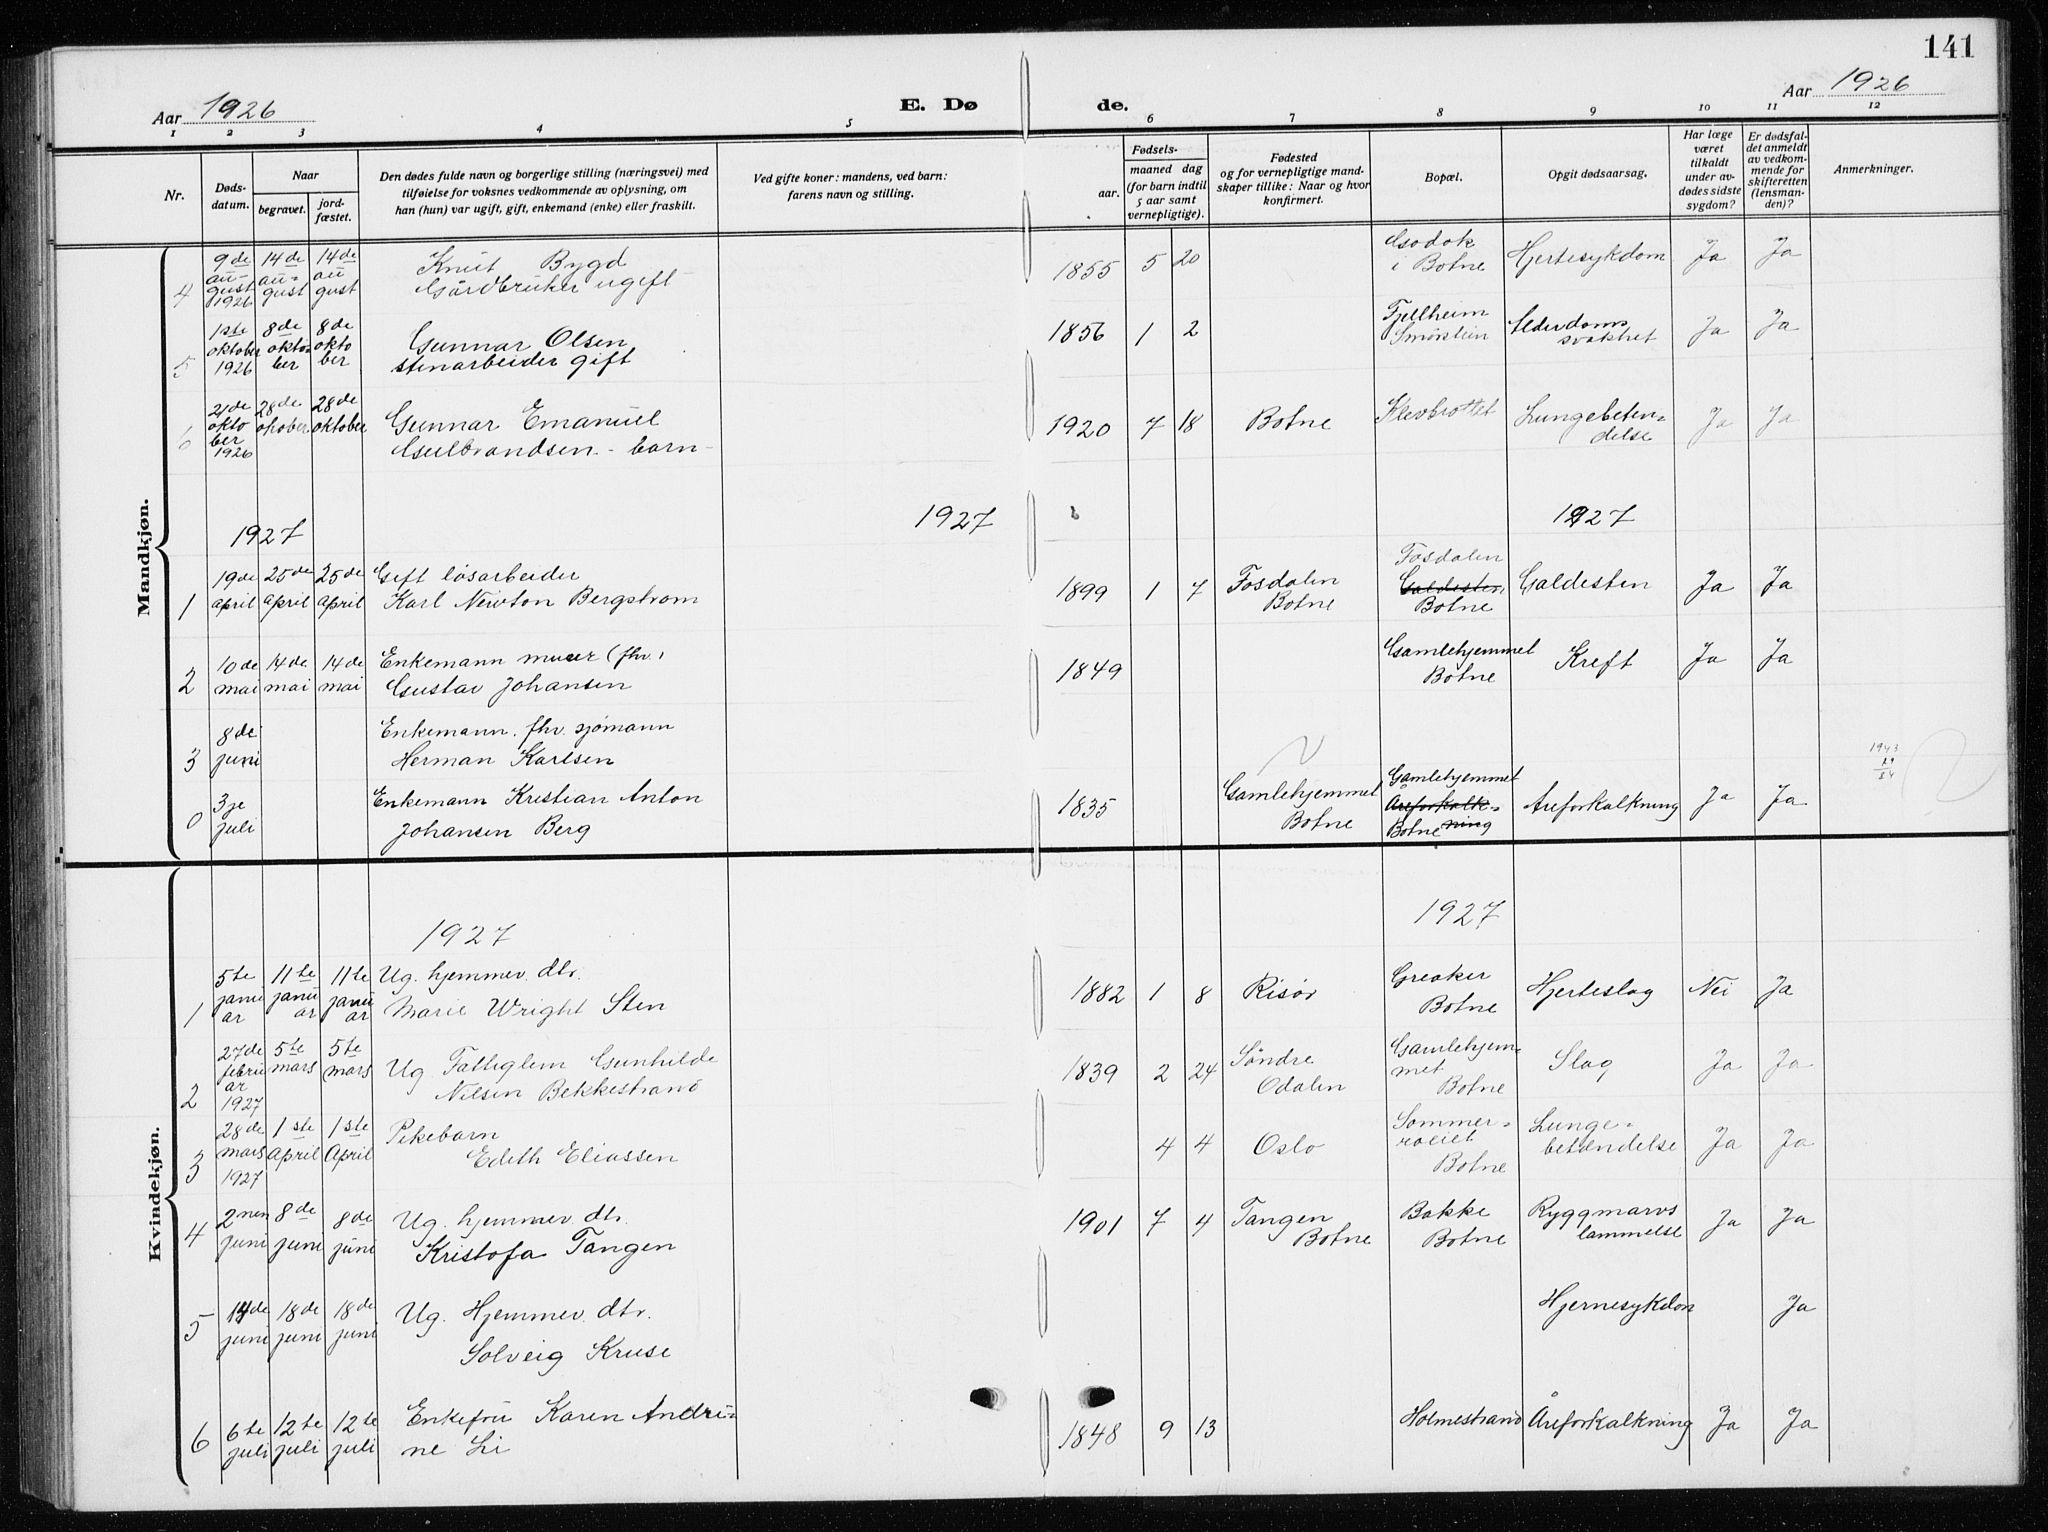 141
Aar 1926
E. Dø
de.
Aar 1926
1 2 3 4 5 6 7 8 9 10 11 12
Nr.
Døds-
datum.
Naar
begravet.
jord-
fæstet.
Den dødes fulde navn og borgerlige stilling (næringsvei) med
tilføielse for voksnes vedkommende av oplysning, om
han (hun) var ugift, gift, enkemand (enke) eller fraskilt.
Ved gifte koner: mandens, ved barn:
farens navn og stilling.
Fødsels-
aar.
maaned dag
(for barn indtil
5 aar samt
vernepligtige).
Fødested
og for vernepligtige mand-
skaper tillike: Naar og hvor
konfirmert.
Bopæl.
Opgit dødsaarsag.
Har læge
været
tilkaldt
under av-
dødes sidste
sygdom?
Er dødsfal-
det anmeldt
av vedkom-
mende for
skifteretten
(lensman-
den)?
Anmerkninger.
Mandkjøn.
4
9de
au-
gust
1926
14de
au-
gust
14de
au
gust
Knut Bygd
Gårdbruker ugift
1855 5 20
i Botne
Hjertesykdom
Ja Ja
5
1ste
oktober
1926
8de
okto
ber
8de
okto
ber
Gunnar Olsen
stenarbeider gift
1856 1 2
Fjellheim
Smørstein
Alderdoms
svakhet
Ja Ja
6
21de
okto
ber
1926
28de
oktober
28de
oktober
Gunnar Emanuel
Gulbrandsen - barn -
1920 7 18
Botne
Klevbrottet
Lungebeten-
delse
Ja Ja
1927
1927
1927
1
19de
april
25de
april
25de
april
Gift løsarbeider
Karl Newton Bergstrøm
1899 1 7
Fosdalen
Botne
Fosdalen
Galdesten
Botne
Galdesten
Ja Ja
2
10de
mai
14de
mai
14de
mai
Enkemann murer (fhv.)
Gustav Johansen
1849
Gamlehjemmet
Botne
Kreft
Ja Ja
3
8de
juni
Enkemann. fhv. sjømann
Herman Karlsen
1943
0
3je
juli
Enkemann Kristian Anton
Johansen Berg
1835
Gamlehjemmet
Botne
Gamlehjemmet
Åreforkalk-
Botne ning
Åreforkalkning
Ja Ja
Kvindekjøn.
1927
1927
1
5te
janu
ar
11te
janu
ar
11te
janu
ar
Ug. hjemmev. dtr.
Marie Wright Sten
1882 1 8
Risør
Greaker
Botne
Hjerteslag
Nei Ja
2
27de
febru
ar
1927
5te
mars
5te
mars
Ug Fattiglem Gunhilde
Nilsen Bekkestrand
1839 2 24
Søndre
Odalen
Gamlehjem-
met
Botne
Slag
Ja Ja
3
28de
mars
1927
1ste
April
1ste
April
Pikebarn
Edith Eliassen
4 4
Oslo
Sommer-
roliet
Botne
Lunge-
betændelse
Ja Ja
4
2nen
juni
8de
juni
8de
juni
Ug. hjemmev. dtr.
Kristofa Tangen
1901 7 4
Tangen
Botne
Bakke
Botne
Ryggmarvs
lammelse
Ja Ja
5
14de
juni
18de
juni
18de
juni
Ug. Hjemmev. dtr.
Solveig Kruse
Hjernesykdon
Ja
6
6te
juli
12te
juli
12te
juli
Enkefru Karen Andri-
ne Li
1848 9 13
Holmestrand
Åreforkalkning
Ja Ja